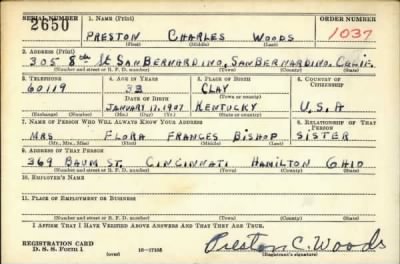 SERIAL NUMBER 1. NAME (Print) ORDER NUMBER
2650 PRESTON CHARLES WOODS 1037
(First) (Middle) (Last)
2. ADDRESS (Print)
305 8th St. SAN BERNARDINO, SAN BERNARDINO, CALIF.
(Number and street or R. F. D. number) (Town) (County) (State)
3. TELEPHONE 4. AGE IN YEARS 5. PLACE OF BIRTH 6. COUNTRY OF CITIZENSHIP
60119 33 CLAY
DATE OF BIRTH (Town or county)
JANUARY 11, 1907 KENTUCKY U.S.A
(Exchange) (Number) (Mo.) (Day) (Yr.) (State or country)
7. NAME OF PERSON WHO WILL ALWAYS KNOW YOUR ADDRESS 8. RELATIONSHIP OF THAT PERSON
MRS FLORA FRANCES BISHOP SISTER
(Mr., Mrs., Miss) (First) (Middle) (Last)
9. ADDRESS OF THAT PERSON
369 BAUM ST. CINCINNATI HAMILTON OHIO
(Number and street or R. F. D. number) (Town) (County) (State)
10. EMPLOYER'S NAME
11. PLACE OF EMPLOYMENT OR BUSINESS
(Number and street or R. F. D. number) (Town) (County) (State)
I AFFIRM THAT I HAVE VERIFIED ABOVE ANSWERS AND THAT THEY ARE TRUE.
REGISTRATION CARD
D. S. S. Form 1 (over) 16—17105 Preston C. Woods
(Registrant's signature)